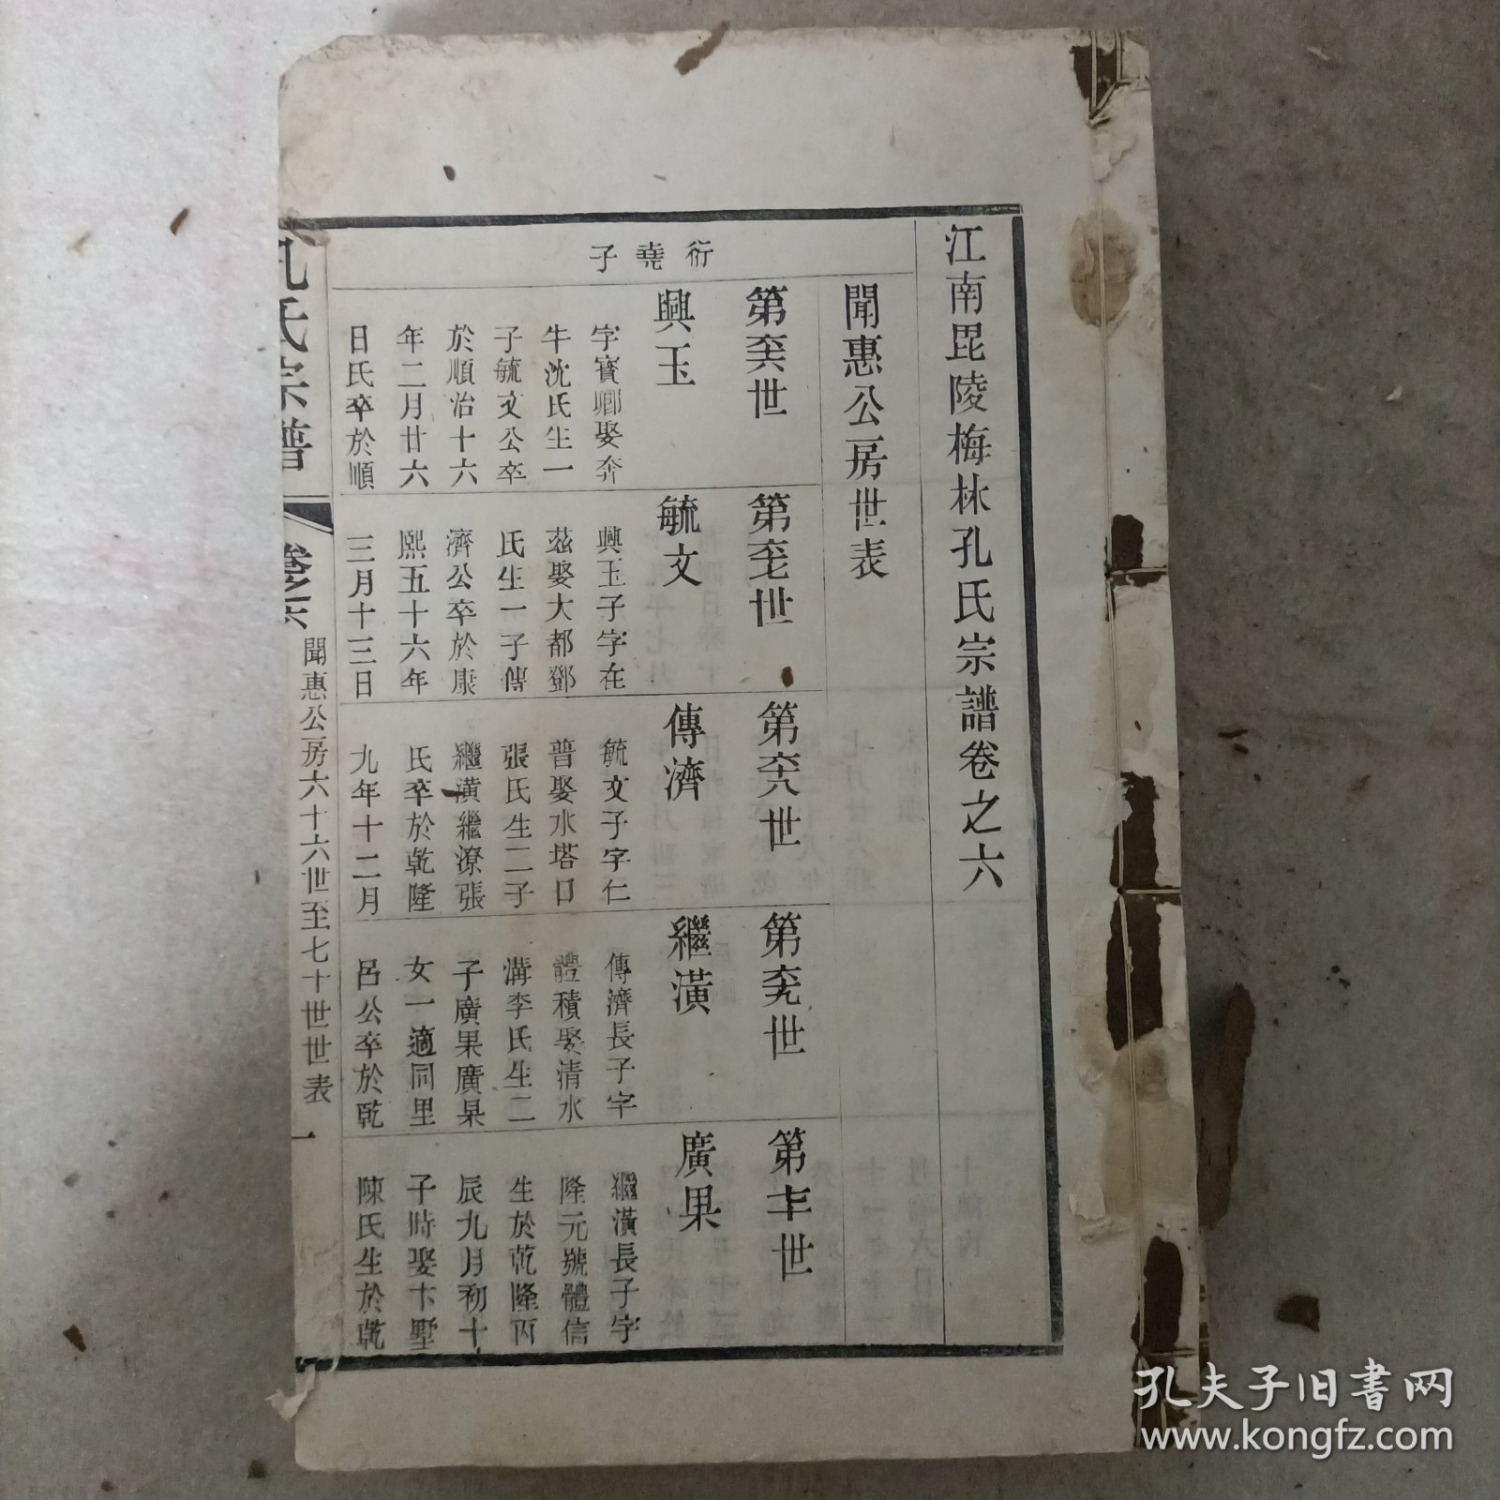 江南毘陵梅林孔氏宗譜卷之六
聞惠公房世表
衍堯子
第六十六世
興玉
字寶卿娶奔
牛沈氏生一
子毓文公卒
於順治十六
年二月廿六
日氏卒於順
第六十七世
毓文
興玉子字在
茲娶大都鄧
氏生一子傳
濟公卒於康
熙五十六年
三月十三日
第六十八世
傳濟
毓文子字仁
普娶水塔口
張氏生二子
繼潢繼潦張
氏卒於乾隆
九年十二月
第六十九世
繼潢
傳濟長子字
體積娶清水
溝李氏生二
子廣果廣杲
女一適同里
呂公卒於乾
第七十世
廣果
繼潢長子字
隆元號體信
生於乾隆丙
辰九月初十
子時娶卞墅
陳氏生於乾
孔氏宗譜
卷之六
聞惠公房六十六世至七十世世表
一
孔夫子旧書网
www.kongfz.com